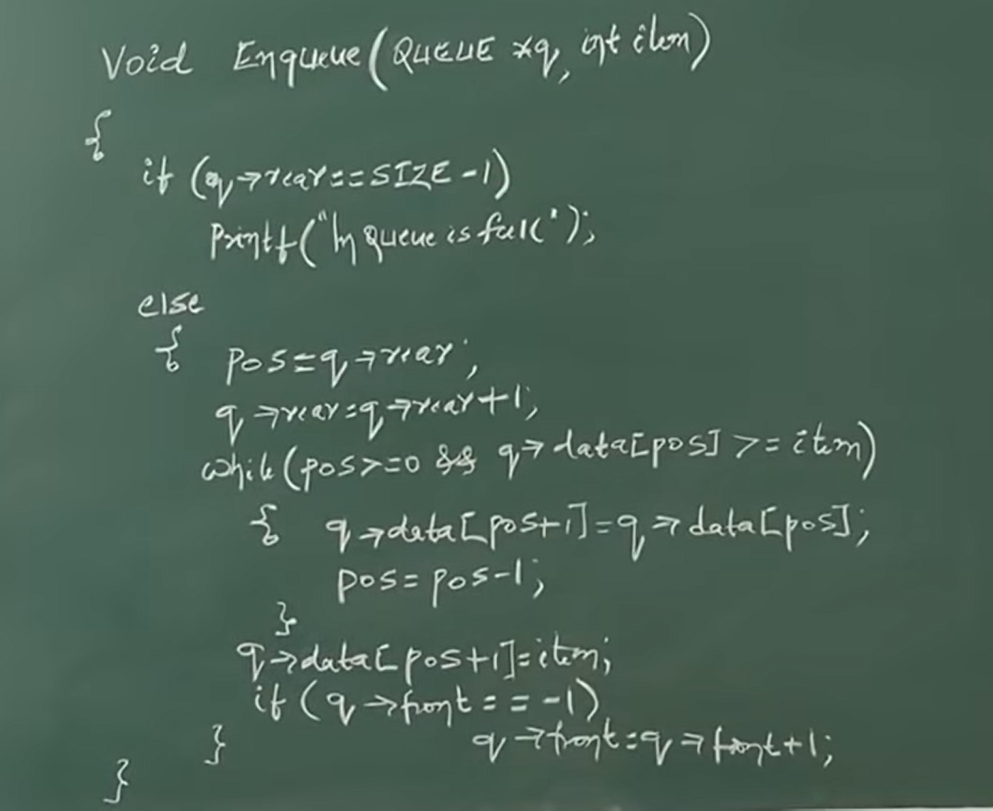 Void Enqueue(QUEUE *q, int item)
{
if (q→rear==SIZE-1)
Printf("\n Queue is full");
else
{ pos=q→rear;
q→rear=q→rear+1;
while(pos>=0 && q→data[pos] >= item)
{ q→data[pos+1]=q→data[pos];
pos=pos-1;
}
q→data[pos+1]=item;
if (q→front==-1)
q→front=q→front+1;
}
}